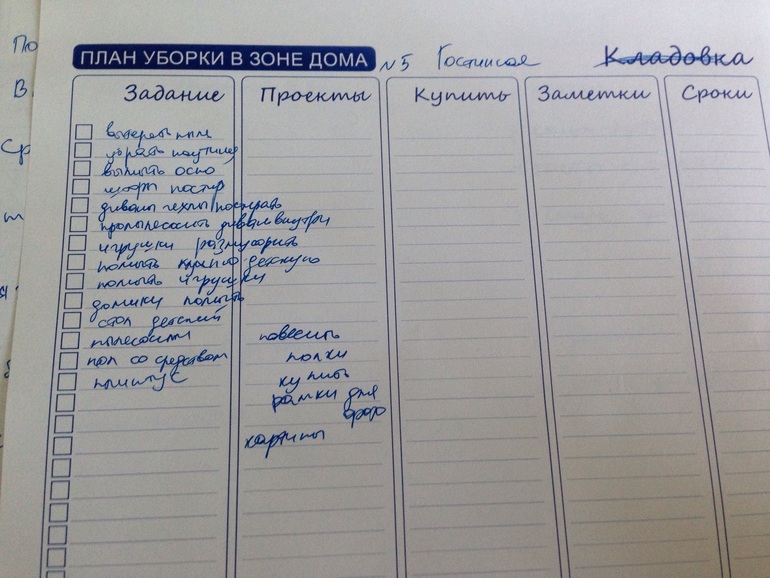 ПЛАН УБОРКИ В ЗОНЕ ДОМА №5 Гостиная Кладовка
Задание Проекты Купить Заметки Сроки
вытереть пыль
убрать паутину
вымыть окно
штор постир
диваны чехлы постирать
пропылесосить диван внутри
игрушки размусорить
помыть кухню детскую
помыть игрушки
домики помыть
стол детский
пылесосить
пол со средством
плинтус
повесить
полки
купить
рамки для
фото
картины
По
В
Ср